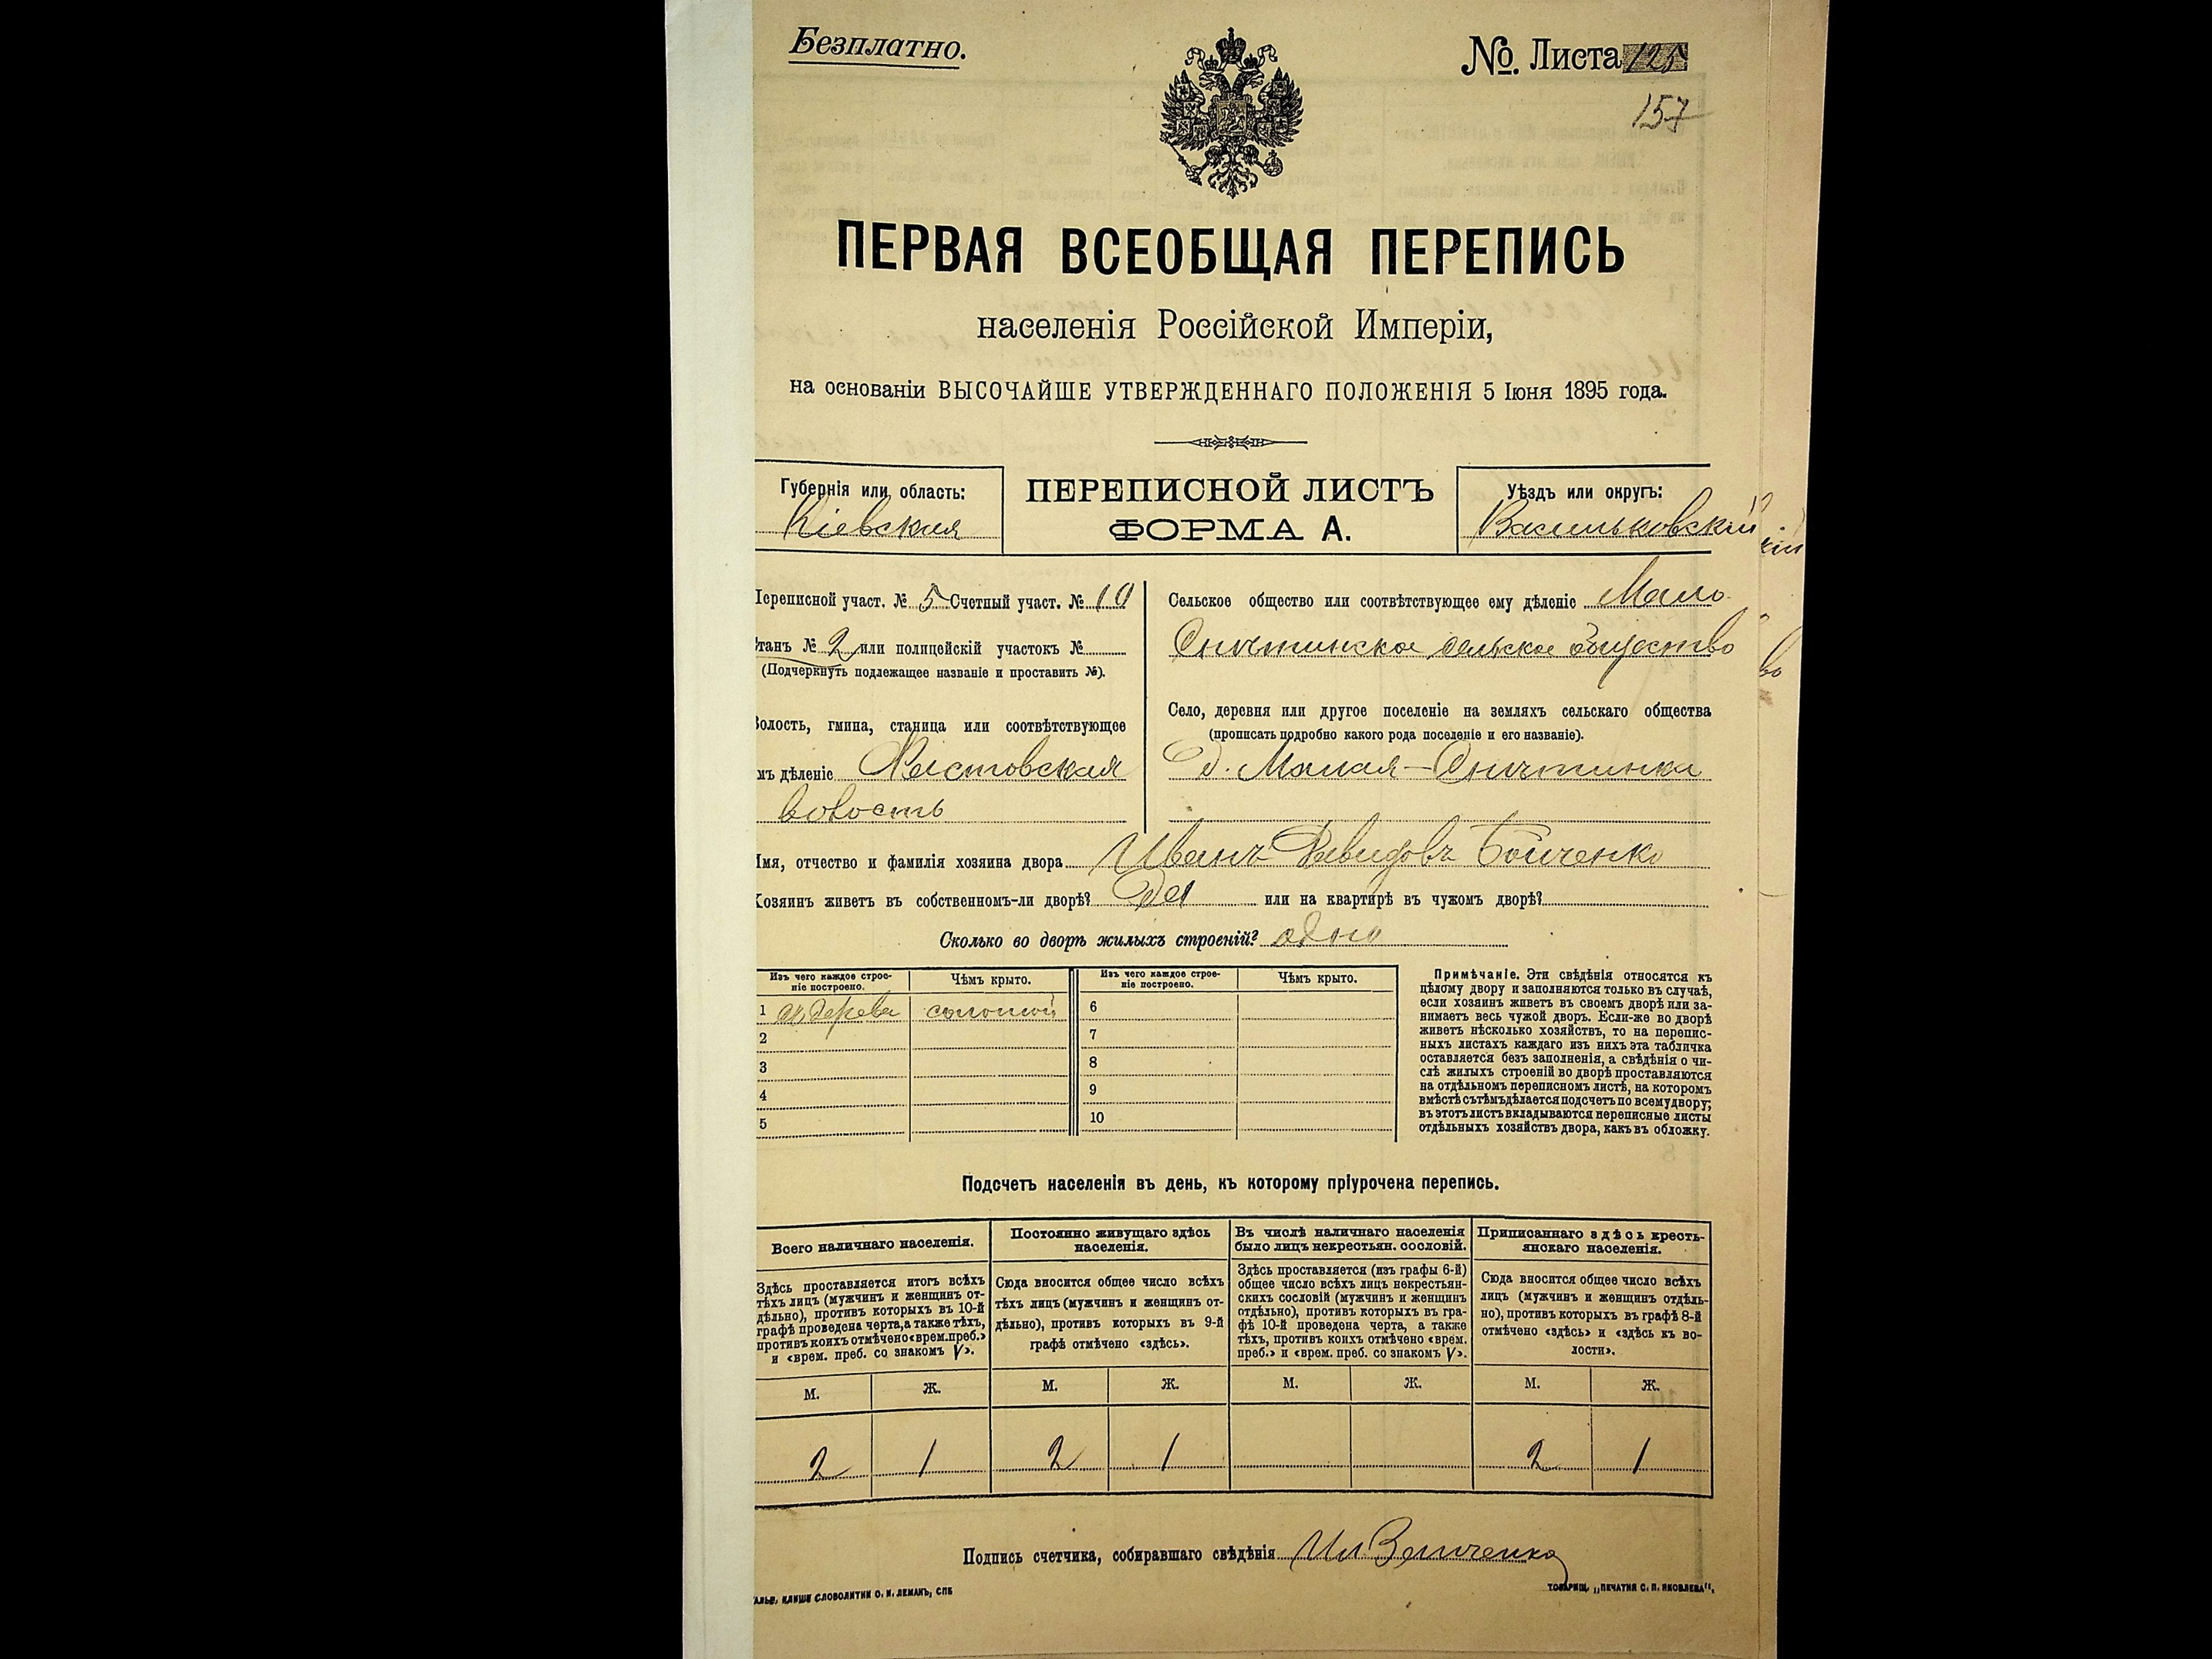 Безплатно.
№ Листа 125
157
ПЕРВАЯ ВСЕОБЩАЯ ПЕРЕПИСЬ
населенія Россійской Имперіи,
на основаніи ВЫСОЧАЙШЕ УТВЕРЖДЕННАГО ПОЛОЖЕНІЯ 5 Іюня 1895 года.
Губернія или область:
Кіевская
ПЕРЕПИСНОЙ ЛИСТЪ
ФОРМА А.
Уѣздъ или округъ:
Васильковскій
Переписной участ. № 5 Счетный участ. № 10
Станъ № 2 или полицейскій участокъ №
(Подчеркнуть подлежащее названіе и проставить №).
Волость, гмина, станица или соотвѣтствующее
имъ дѣленіе Хвстовская
волость
Сельское общество или соотвѣтствующее ему дѣленіе Мало-
Снитинское сельское общество
Село, деревня или другое поселеніе на земляхъ сельскаго общества
(прописать подробно какого рода поселеніе и его названіе).
д. Малая-Снитинка
Имя, отчество и фамилія хозяина двора Иванъ Давидовъ Бойченко
Хозяинъ живетъ въ собственномъ-ли дворѣ? Да или на квартирѣ въ чужомъ дворѣ?
Сколько во дворѣ жилыхъ строеній? одно
Изъ чего каждое строе-
ніе построено.
Чѣмъ крыто.
Изъ чего каждое строе-
ніе построено.
Чѣмъ крыто.
1 изъ дерева соломой 6
2 7
3 8
4 9
5 10
Примѣчаніе. Эти свѣдѣнія относятся къ
цѣлому двору и заполняются только въ случаѣ,
если хозяинъ живетъ въ своемъ дворѣ или за-
нимаетъ весь чужой дворъ. Если-же во дворѣ
живетъ нѣсколько хозяйствъ, то на перепис-
ныхъ листахъ каждаго изъ нихъ эта табличка
оставляется безъ заполненія, а свѣдѣнія о чи-
слѣ жилыхъ строеній во дворѣ проставляются
на отдѣльномъ переписномъ листѣ, на которомъ
вмѣстѣ съ тѣмъ дѣлается подсчетъ по всему двору;
въ этотъ листъ вкладываются переписные листы
отдѣльныхъ хозяйствъ двора, какъ въ обложку.
Подсчетъ населенія въ день, къ которому пріурочена перепись.
Всего наличнаго населенія.
Здѣсь проставляется итогъ всѣхъ
тѣхъ лицъ (мужчинъ и женщинъ от-
дѣльно), противъ которыхъ въ 10-й
графѣ проведена черта, а также тѣхъ,
противъ коихъ отмѣчено «врем. преб.»
и «врем. преб. со знакомъ V».
Постоянно живущаго здѣсь
населенія.
Сюда вносится общее число всѣхъ
тѣхъ лицъ (мужчинъ и женщинъ от-
дѣльно), противъ которыхъ въ 9-й
графѣ отмѣчено «здѣсь».
Въ числѣ наличнаго населенія
было лицъ некрестьян. сословій.
Здѣсь проставляется (изъ графы 6-й)
общее число всѣхъ лицъ некрестьян-
скихъ сословій (мужчинъ и женщинъ
отдѣльно), противъ которыхъ въ гра-
фѣ 10-й проведена черта, а также
тѣхъ, противъ коихъ отмѣчено «врем.
преб.» и «врем. преб. со знакомъ V».
Приписаннаго здѣсь кресть-
янскаго населенія.
Сюда вносится общее число всѣхъ
лицъ (мужчинъ и женщинъ отдѣль-
но), противъ которыхъ въ графѣ 8-й
отмѣчено «здѣсь» и «здѣсь къ во-
лости».
М. Ж. М. Ж. М. Ж. М. Ж.
2 1 2 1 2 1
Подпись счетчика, собиравшаго свѣдѣнія Ил. Величенко
КЛИШЕ СЛОВОЛИТНИ О. И. ЛЕМАНЪ, СПБ
ТОВАРИЩ. „ПЕЧАТНЯ С. П. ЯКОВЛЕВА".